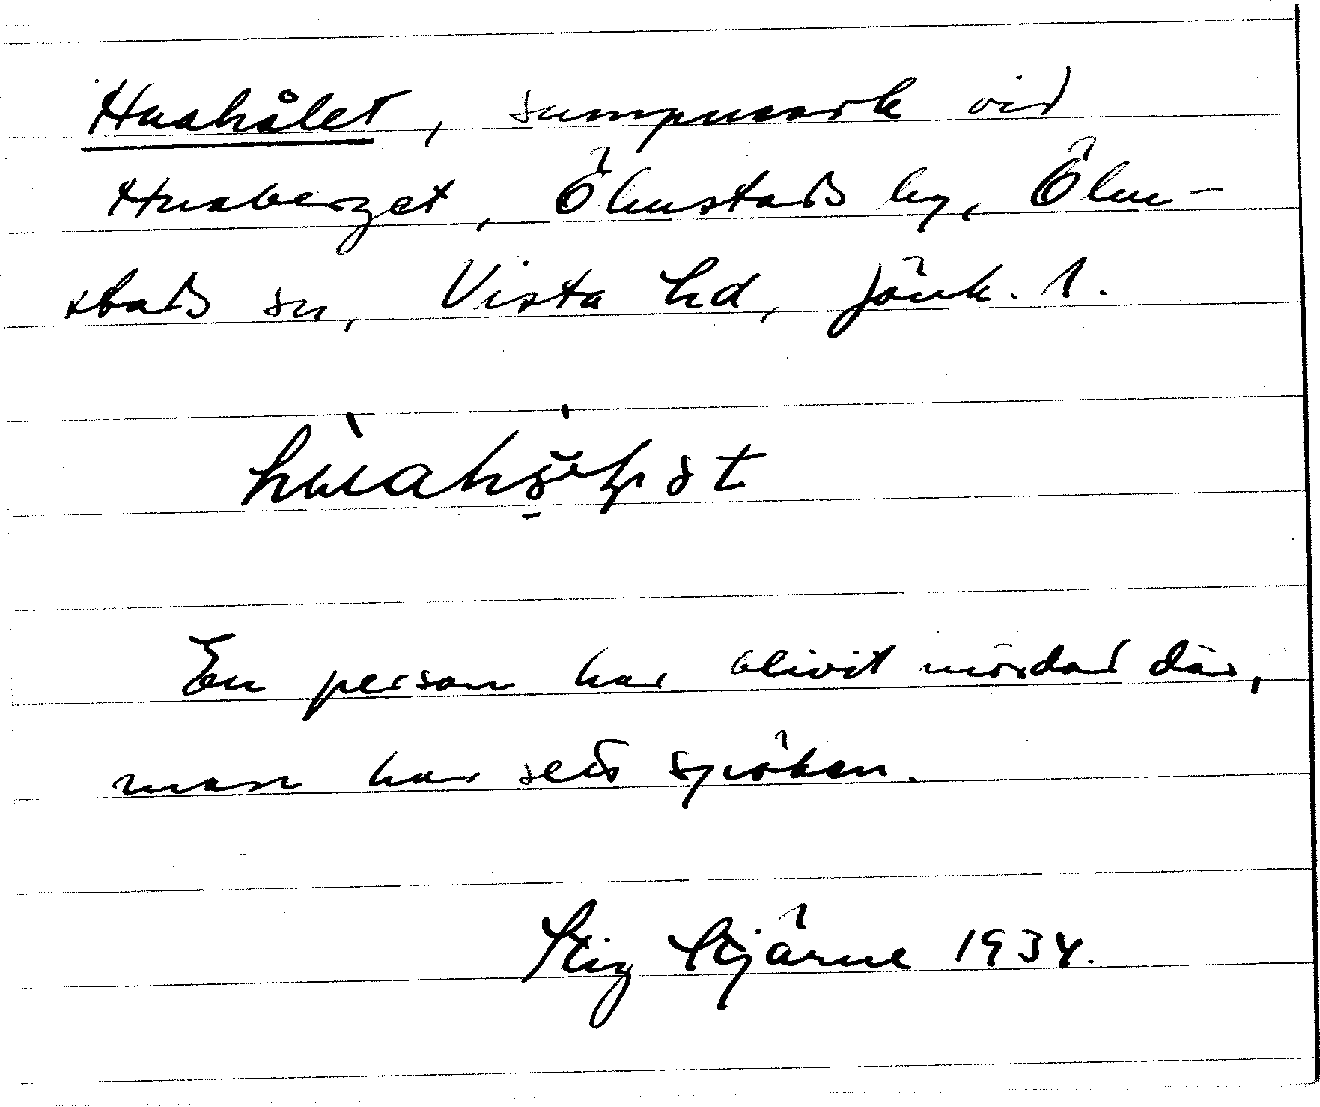 Huahålet, sumpmark vid
Huaberget, Ölmstads by, Ölm-
stads sn, Vista hd, Jönk. l.
En person har blivit mördad där,
man har sett spöken.
Stig Stjärne 1934.